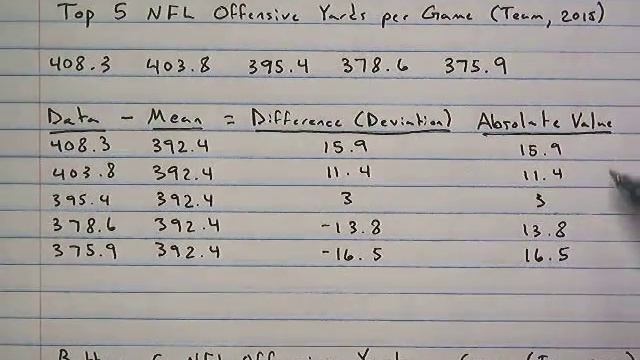 Top 5 NFL Offensive Yards per Game (Team, 2015)
408.3 403.8 395.4 378.6 375.9
Data - Mean = Difference (Deviation) Absolute Value
408.3 392.4 15.9 15.9
403.8 392.4 11.4 11.4
395.4 392.4 3 3
378.6 392.4 -13.8 13.8
375.9 392.4 -16.5 16.5